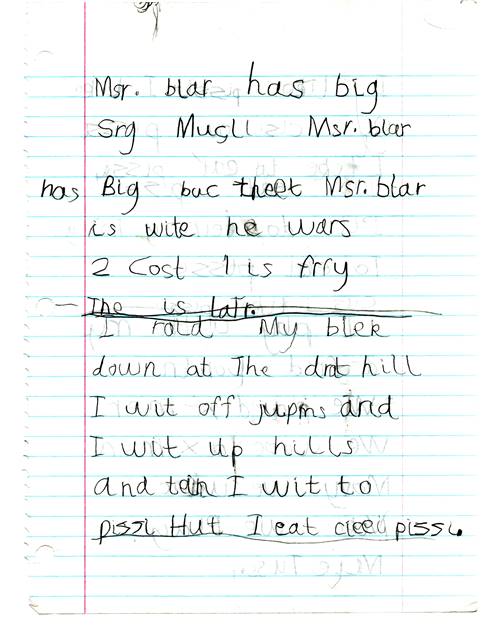 Msr. blar has big
Srg Musll Msr. blar
has Big buc theet Msr. blar
is wite he wars
2 Cost 1 is frry
The is latr.
I rold My blek
down at The drt hill
I wit off jupms and
I wit up hills
and I wit to
pissu Hut I eat pissu.